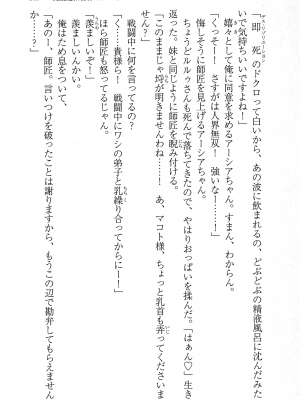 「『即死』のドクロって白いから、あの波に飲まれるの、どぷどぷの精液風呂に沈んだみた
いで気持ちいいですよね！」
嬉々として俺に同意を求めるアーシアちゃん。すまん、わからん。
「くっそー！　さすがは人界無双！　強いなー……！」
悔しそうに師匠を見上げるアーシアちゃん。
ちょうどルルゥさんも死んで落ちてきたので、やはりおっぱいを揉んだ。「はぁん♡」生き
返った。妹と同じように師匠を睨み付ける。
「このままじゃ埒が明きませんわね……！　あ、マコト様、ちょっと乳首も弄ってくださいま
せん？」
「く……貴様ら！　戦闘中にワシの弟子と乳繰り合ってからに……！
戦闘中に何を言ってるの？
ほら師匠も怒ってるじゃん。
羨ましいぞ！」
羨ましいんかい。
俺はため息を吐く。
「あのー、師匠。言いつけを破ったことは謝りますから、もうこの辺で勘弁してもらえません
か……？」